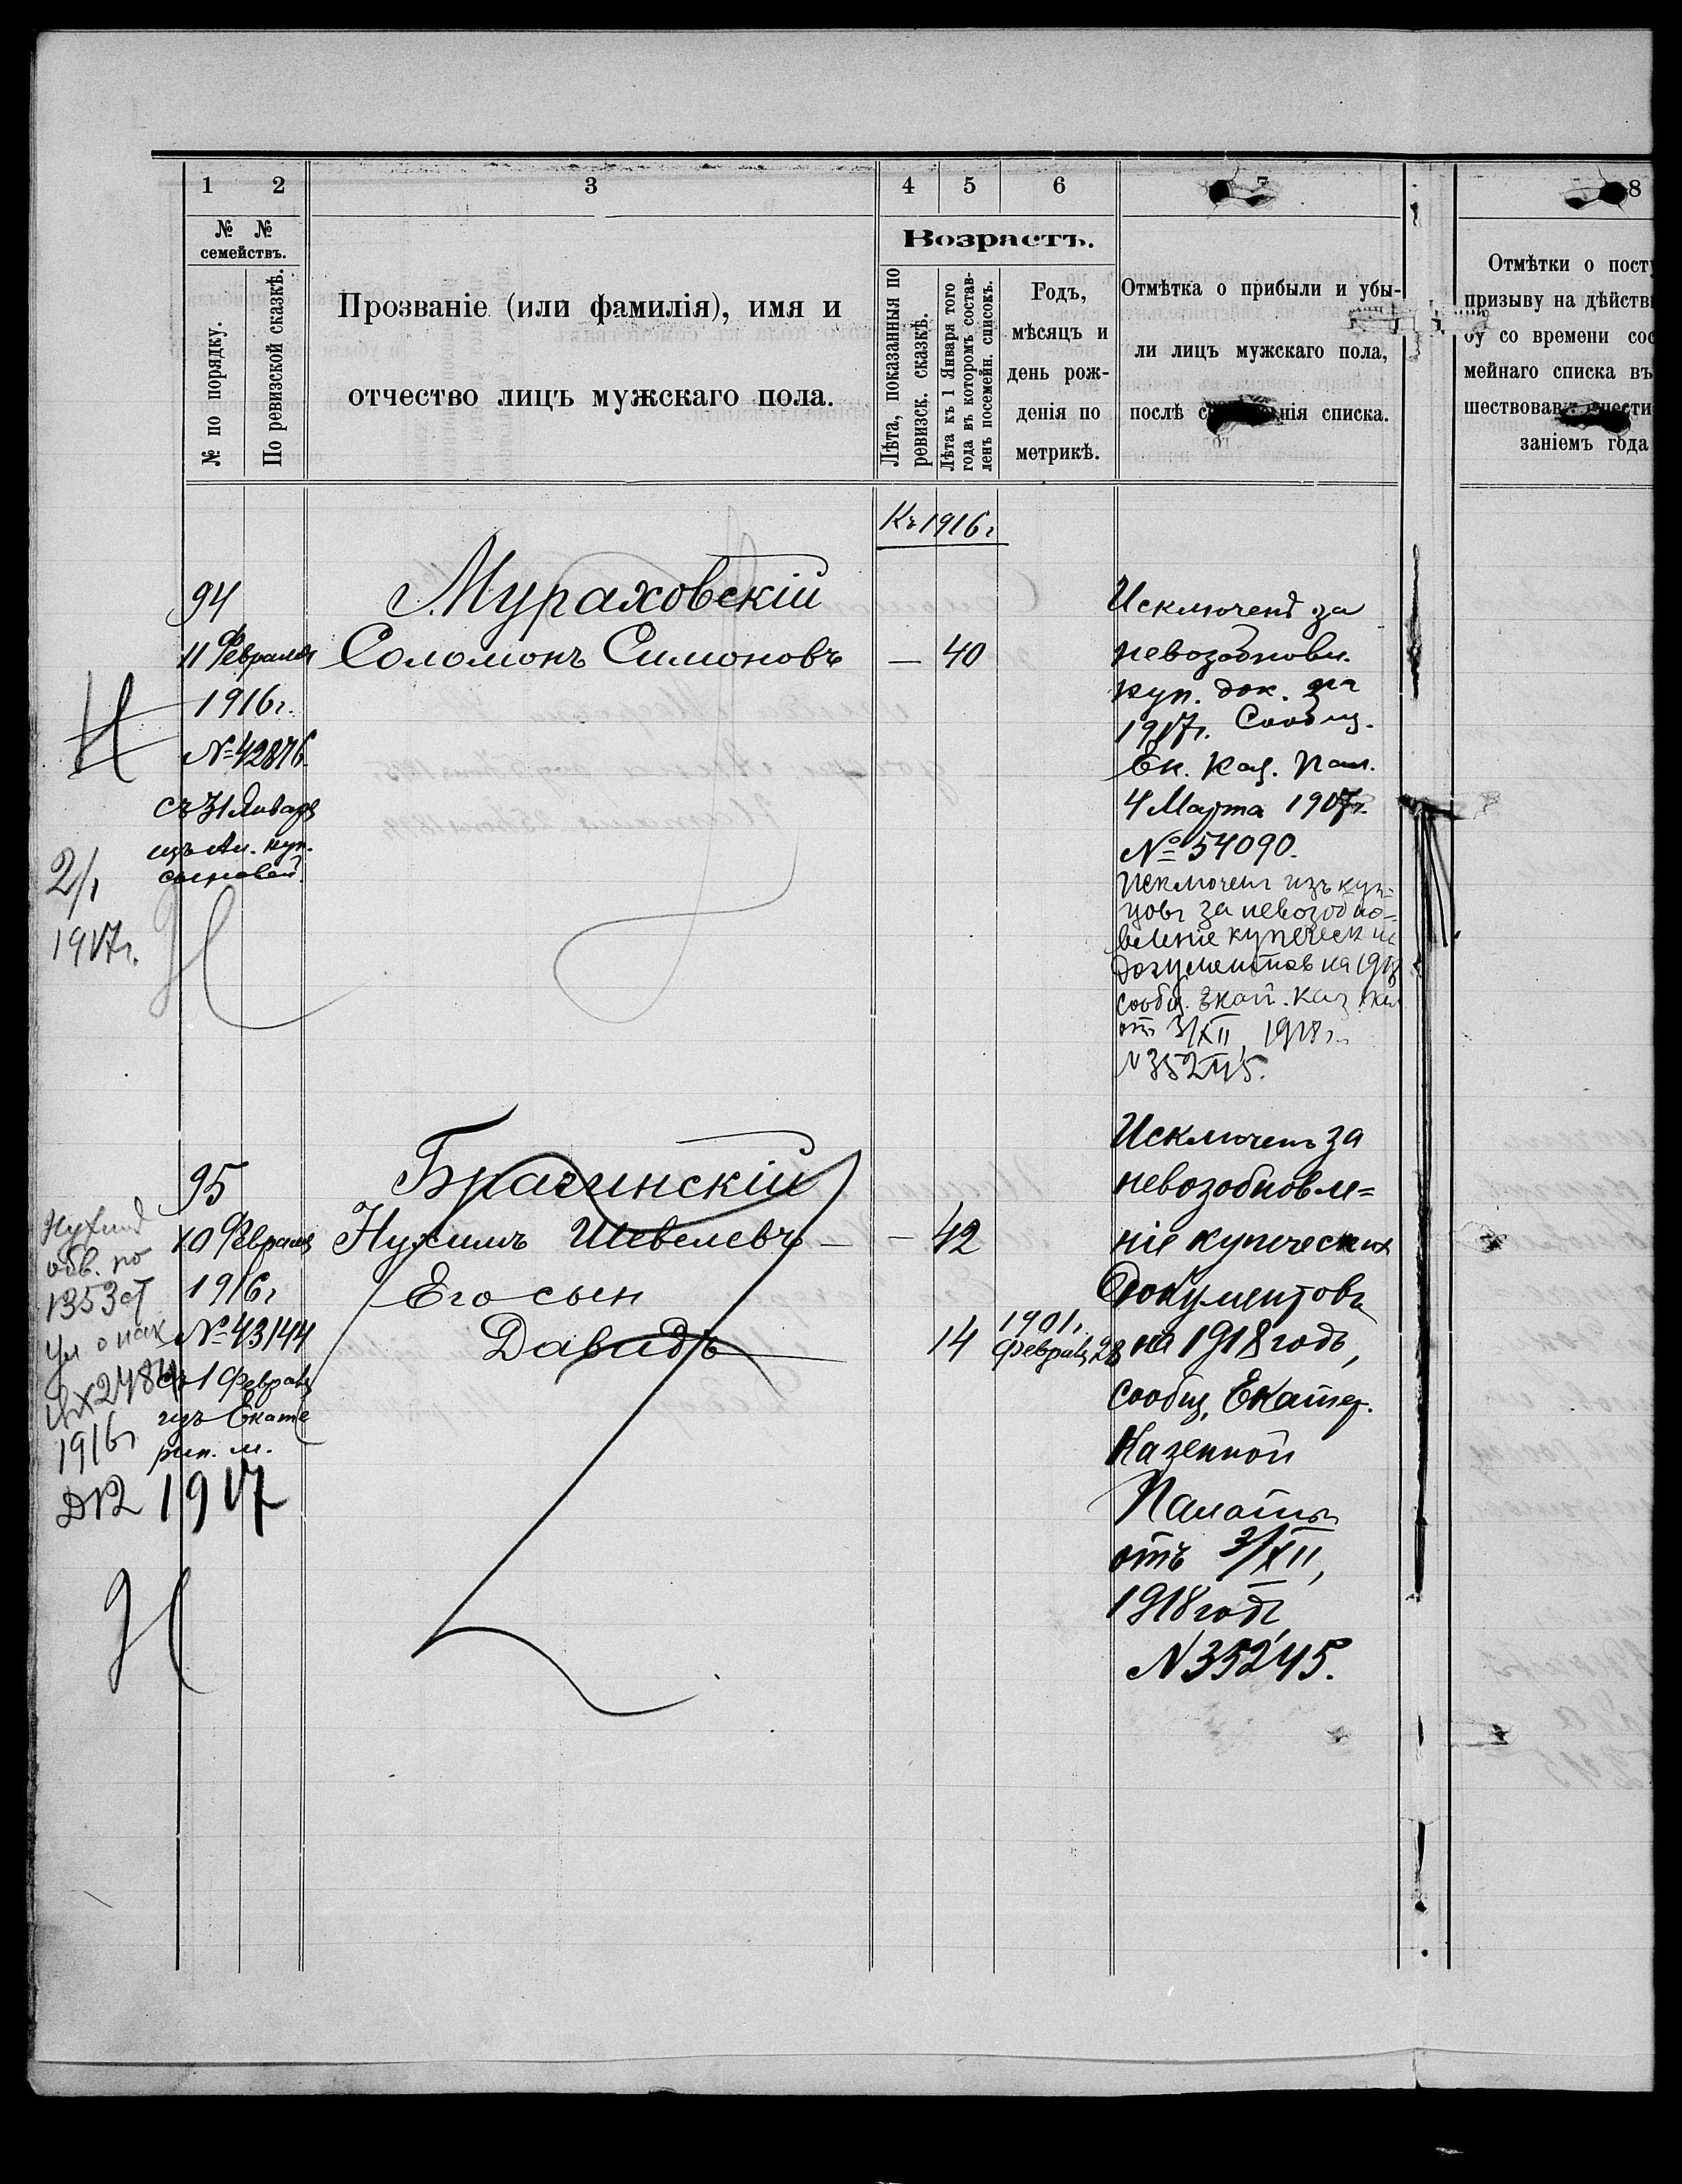 1 2 3 4 5 6 7 8
№ № семействъ.
№ по порядку.
По ревизской сказкѣ.
Прозваніе (или фамилія), имя и
отчество лицъ мужскаго пола.
Возрастъ.
Лѣта, показанныя по
ревизск. сказкѣ.
Лѣта къ 1 Января того
года въ которомъ состав-
ленъ посемейн. списокъ.
Годъ,
мѣсяцъ и
день рож-
денія по
метрикѣ.
Отмѣтка о прибыли и убы-
ли лицъ мужскаго пола,
послѣ с нія списка.
Отмѣтки о посту
призыву на дѣйств
бу со времени сос
мейнаго списка въ
шествовав
заніемъ года
Къ 1916г
94
11 Февраля
1916г.
№ 42876
съ 31 Января
изъ Ал. куп.
сыновей.
2/1
1917г.
Мураховскій
Соломонъ Симоновъ — 40
Исключенъ за
невозобновл.
куп. док. на
1917г. Сообщ.
Ек. Каз. Пал.
4 Марта 1917г.
№ 54090.
Исключенъ изъ куп-
цовъ за невозобно-
вленіе купеческ
документов на 1918
сообщ. Экат. Каз.
отъ 3/XII 1918г.
N 35245.
95
10 Февраля
1916г
№ 43144
съ 1 Февраля
изъ Екате
рин. м.
1917
Нухим
обв. по
1353 ст
Ул о нак
Вх 2484
1916г
Брагинскій
Нухимъ Шевелевъ — — 42
Его сын
Давидъ 14 1901г. Февраля 28
Исключенъ за
невозобновле=
ніе купеческих
документовъ
на 1918 годъ,
сообщ. Екатер.
Казенной
Палаты
отъ 3/XII,
1918 годъ
N 35245.